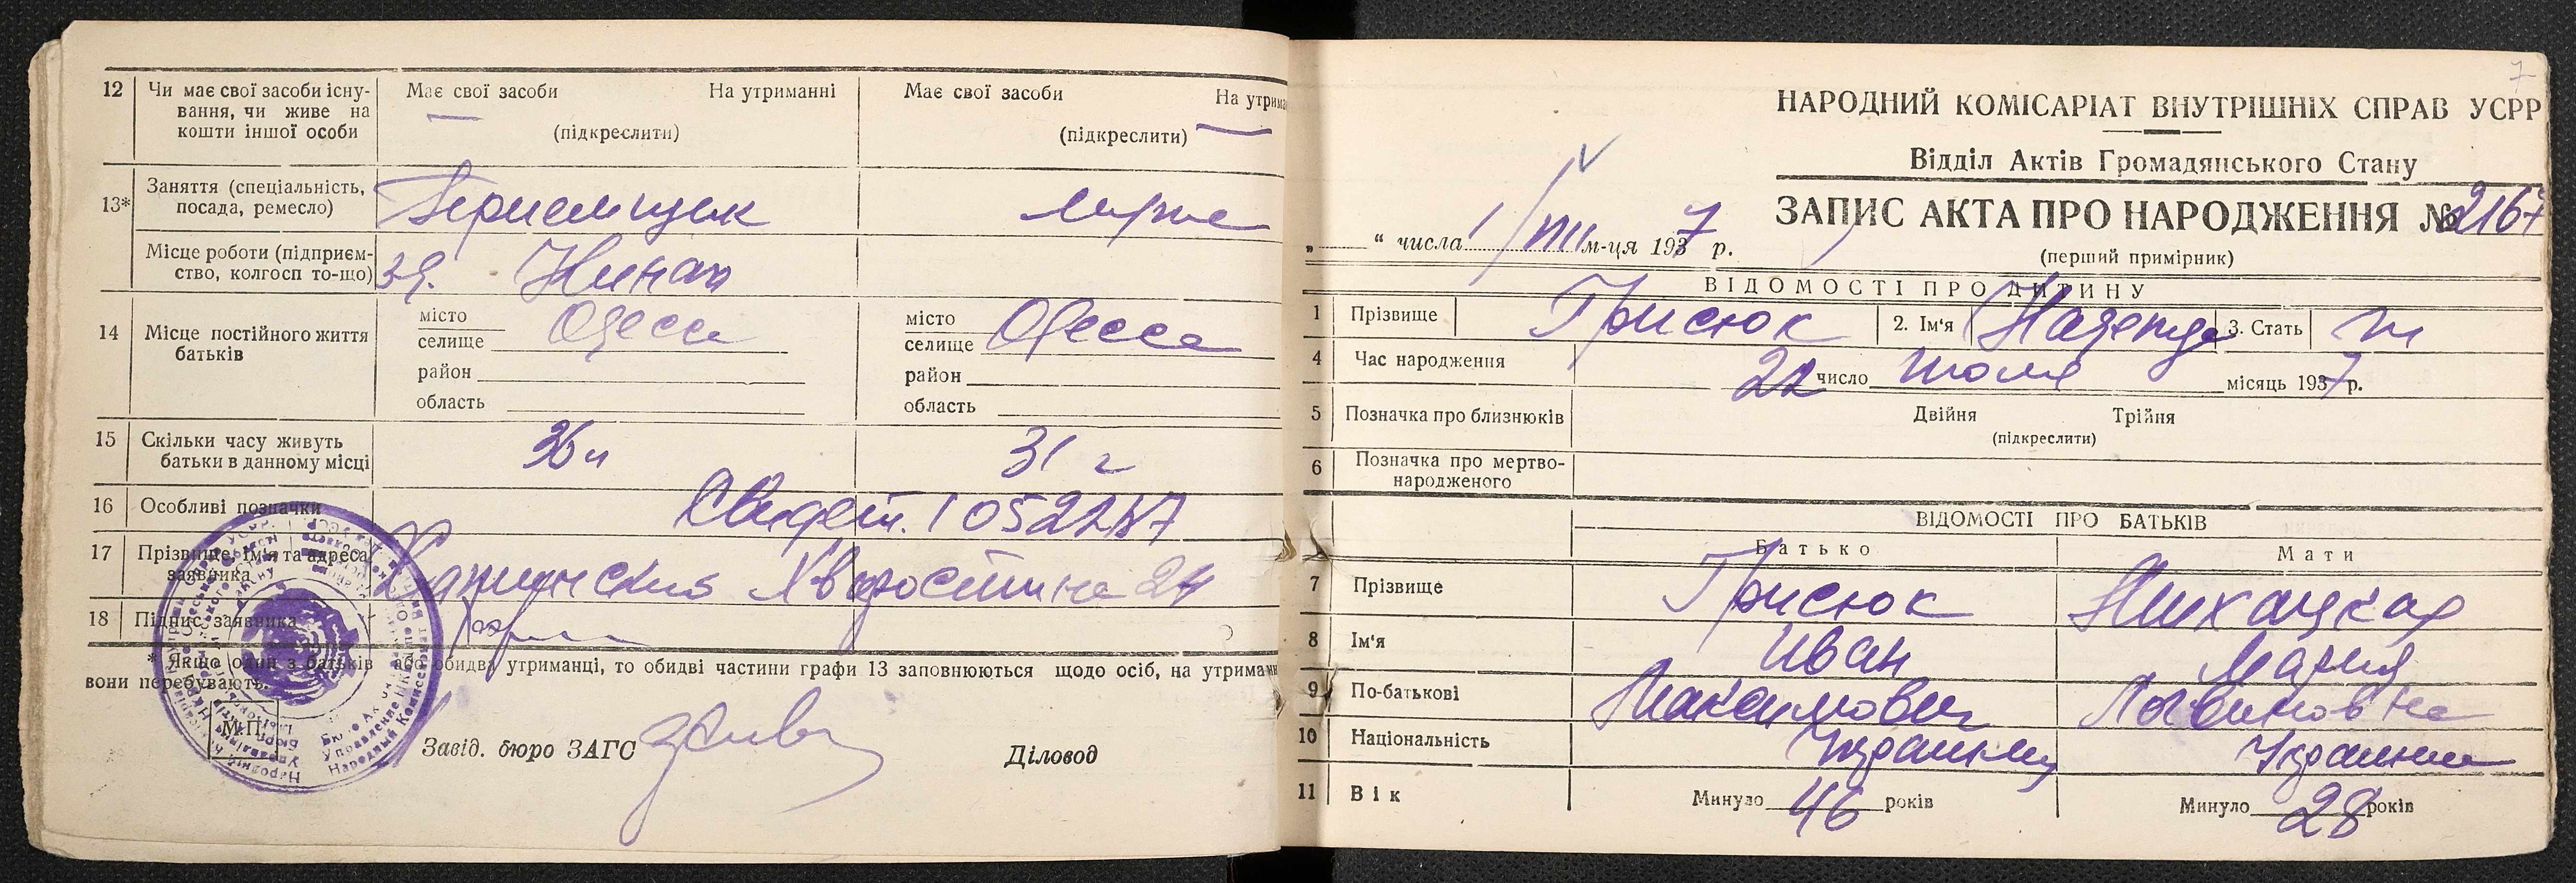 12 Чи має свої засоби існу-
вання, чи живе на
кошти іншої особи
Має свої засоби На утриманні
(підкреслити)
Має свої засоби На утрима
(підкреслити)
13* Заняття (спеціальність,
посада, ремесло)
Місце роботи (підприєм-
ство, колгосп то-що)
14 Місце постійного життя
батьків
місто Одесса
селище
район
область
місто Одесса
селище
район
область
15 Скільки часу живуть
батьки в данному місці
31 г
16 Особливі позначки
Свидет.
17 Прізвище, ім'я та адреса
заявника
Хворостина 24
18 Підпис заявника
* Якщо один з батьків або обидва утриманці, то обидві частини графи 13 заповнюються щодо осіб, на утриман
вони перебувають.
М.П.
Завід. бюро ЗАГС
Діловод
7
НАРОДНИЙ КОМІСАРІАТ ВНУТРІШНІХ СПРАВ УСРР
Відділ Актів Громадянського Стану
ЗАПИС АКТА ПРО НАРОДЖЕННЯ № 2167
„ “ числа 1/VIII м-ця 1937 р.
(перший примірник)
ВІДОМОСТІ ПРО ДИТИНУ
1 Прізвище Грисюк 2. Ім'я Надежда 3. Стать ж
4 Час народження 22 число июля місяць 1937 р.
5 Позначка про близнюків Двійня Трійня
(підкреслити)
6 Позначка про мертво-
народженого
ВІДОМОСТІ ПРО БАТЬКІВ
Батько Мати
7 Прізвище Грисюк
8 Ім'я Иван Мария
9 По-батькові Максимович Логвиновна
10 Національність Украинец Украинка
11 Вік Минуло 46 років Минуло 28 років